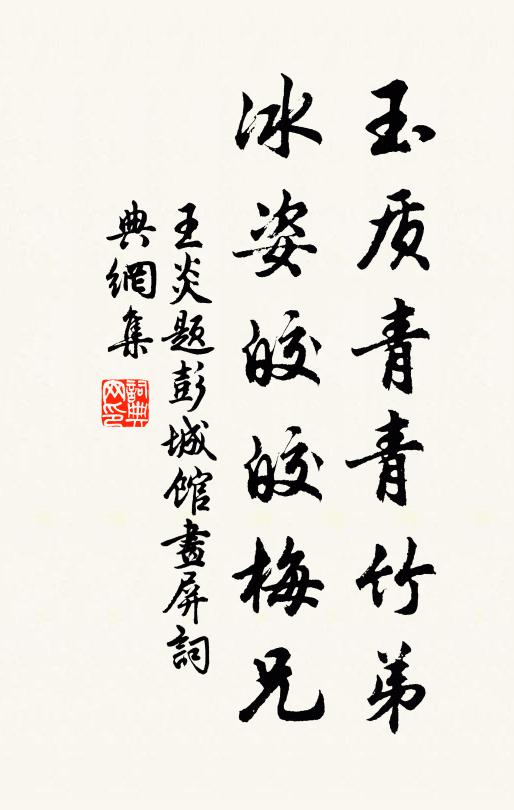 玉质青青竹弟
冰姿皎皎梅兄
王炎题彭城馆畫屏詞
典網集
詞典
网印